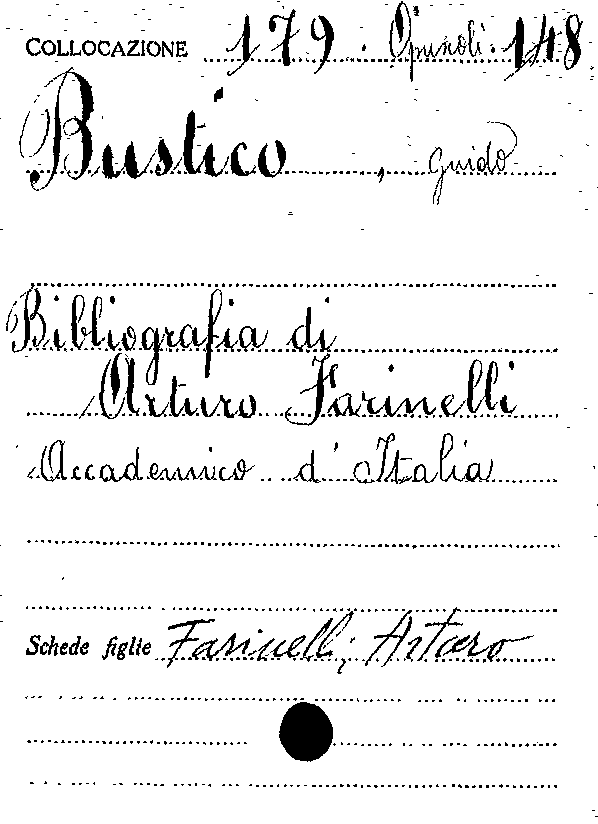 COLLOCAZIONE 179. Opuscoli. 148
Bustico, Guido
Bibliografia di
Arturo Farinelli
Accademico d'Italia
Schede figlie Farinelli, Arturo